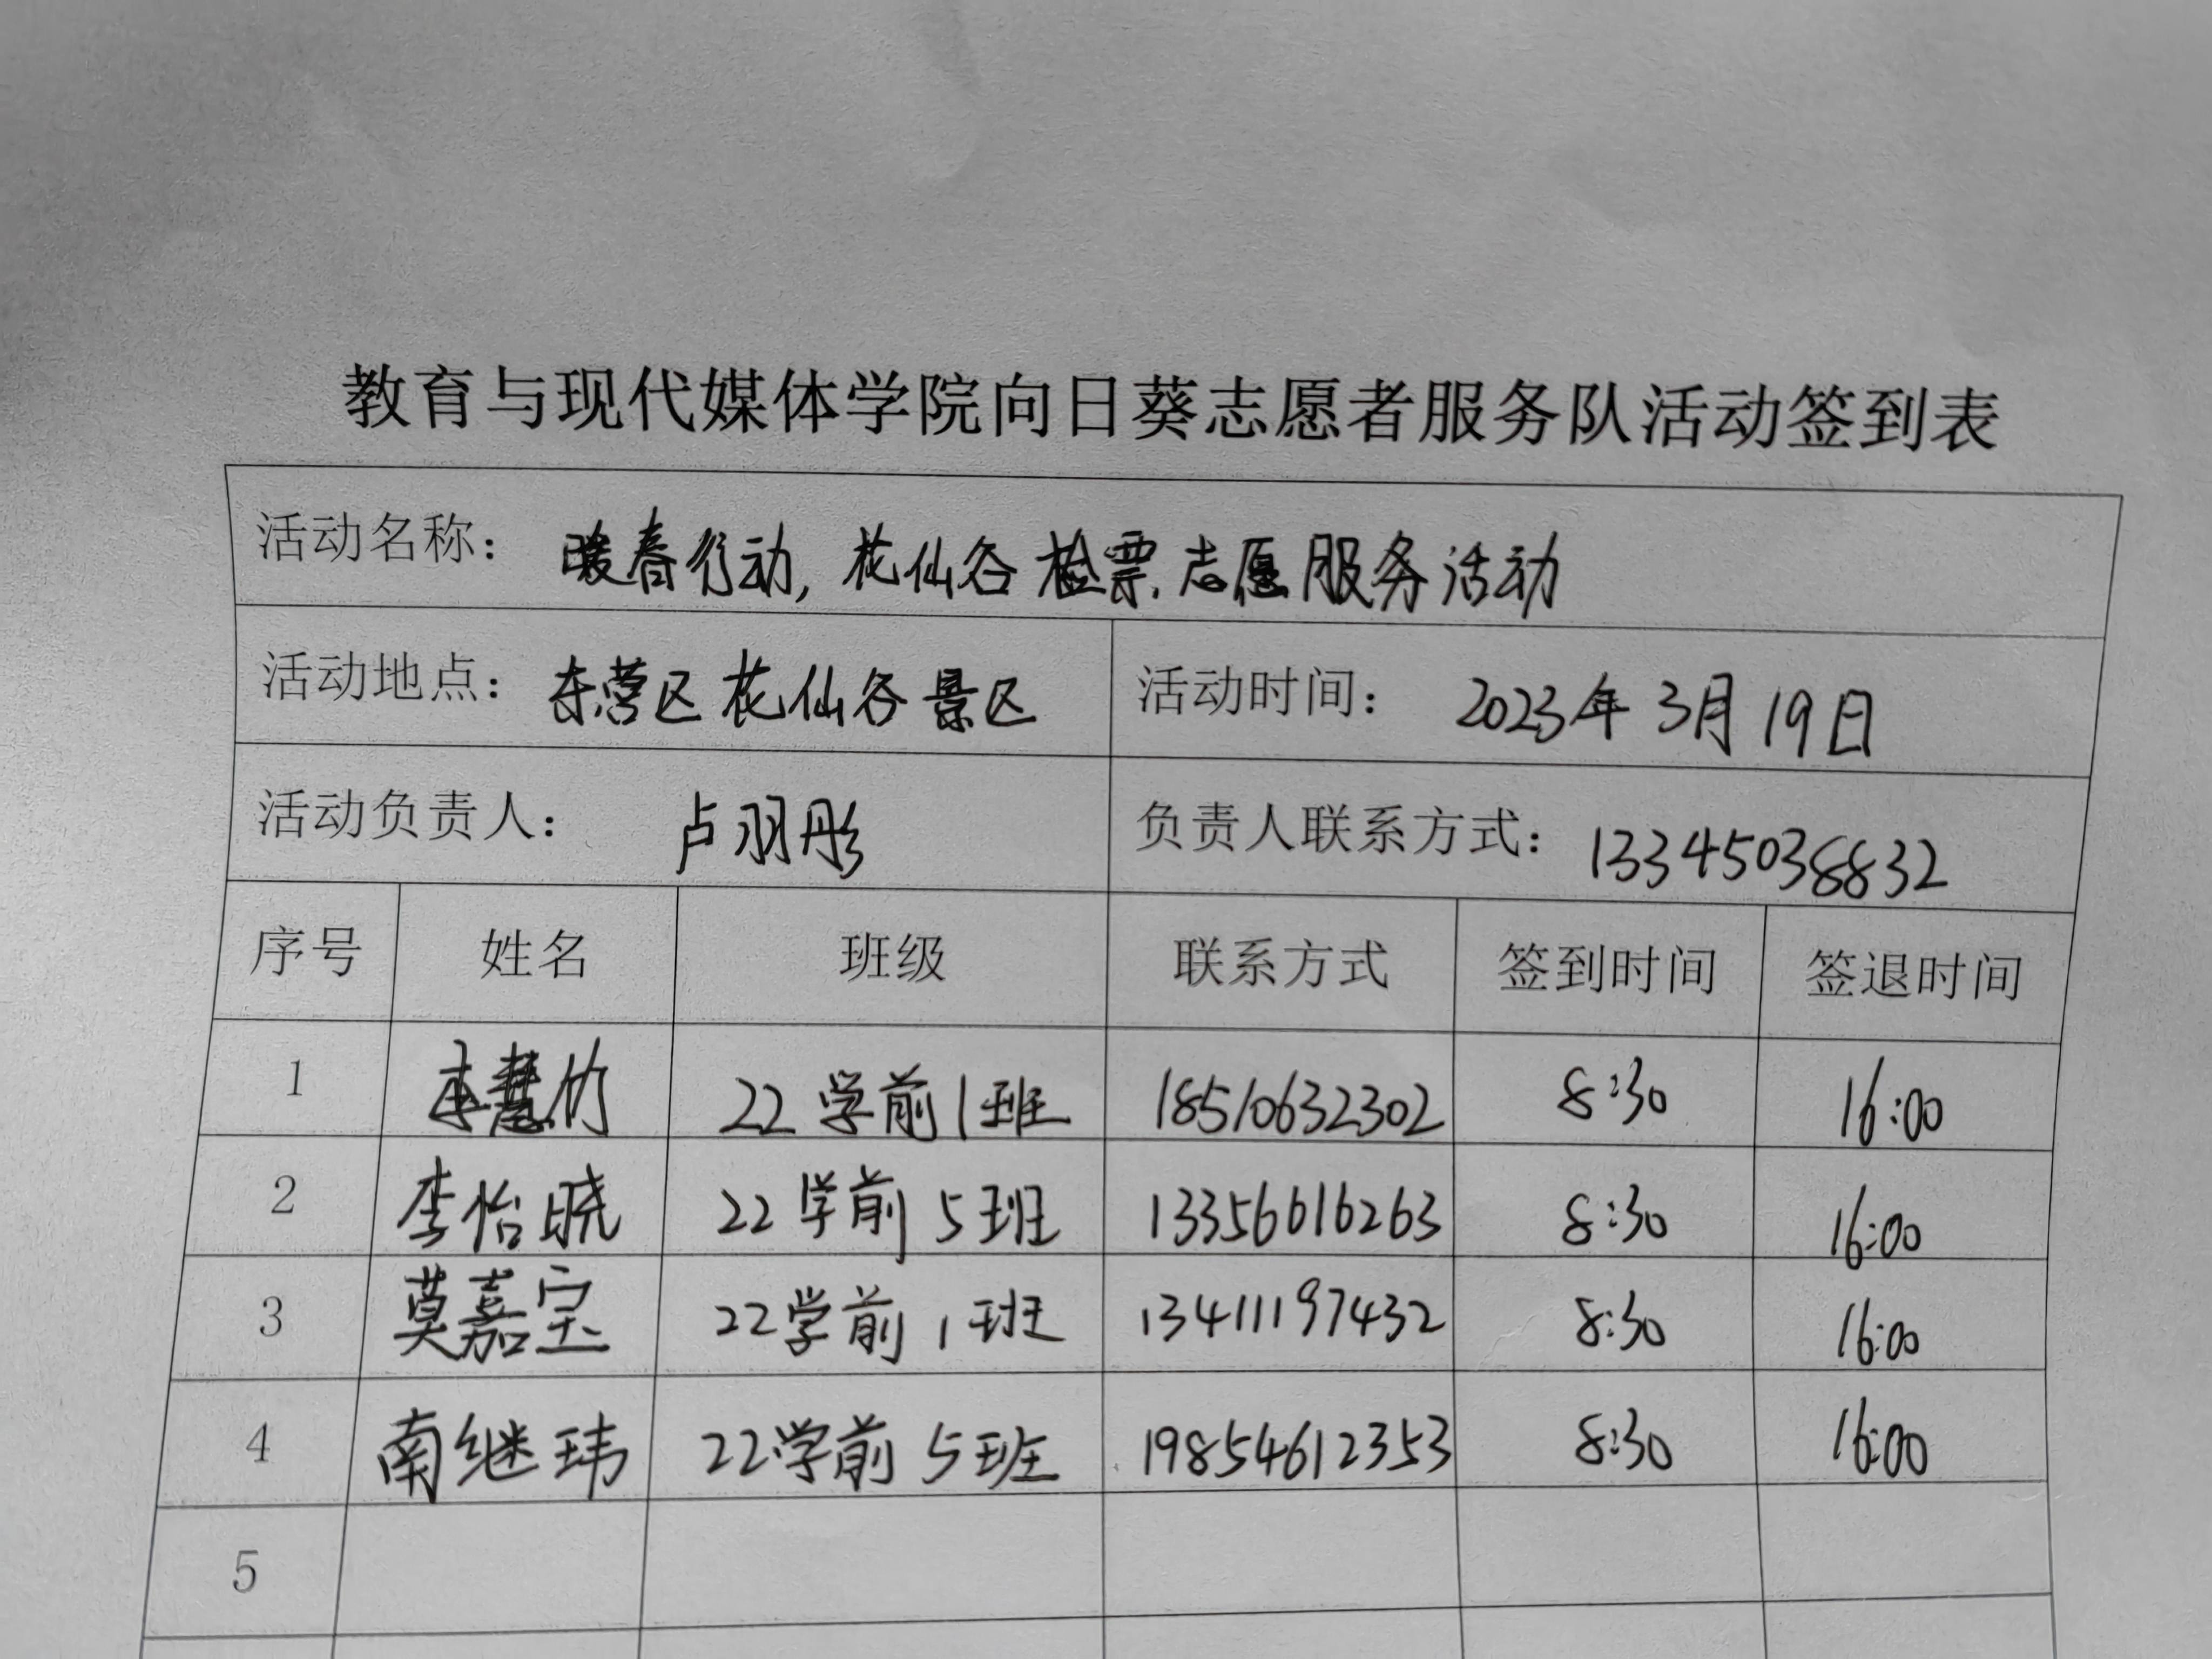 教育与现代媒体学院向日葵志愿者服务队活动签到表
活动名称： 暖春行动，花仙谷检票志愿服务活动
活动地点： 东营区花仙谷景区 活动时间： 2023年3月19日
活动负责人： 卢羽彤 负责人联系方式：13345038832
序号 姓名 班级 联系方式 签到时间 签退时间
1 李慧竹 22学前1班 18510632302 8:30 16:00
2 李怡晓 22学前5班 13356616263 8:30 16:00
3 莫嘉宝 22学前1班 13411197432 8:30 16:00
4 南继玮 22学前5班 19854612353 8:30 16:00
5